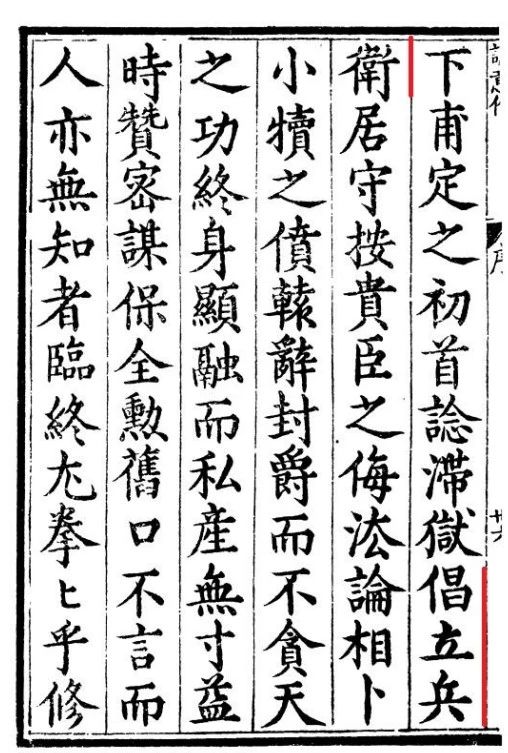 下甫定之初首諗滯獄倡立兵
衛居守按貴臣之侮法論相卜
小犢之僨轅辭封爵而不貪天
之功終身顯融而私產無寸益
時贊密謀保全勳舊口不言而
人亦無知者臨終尤拳匕乎修